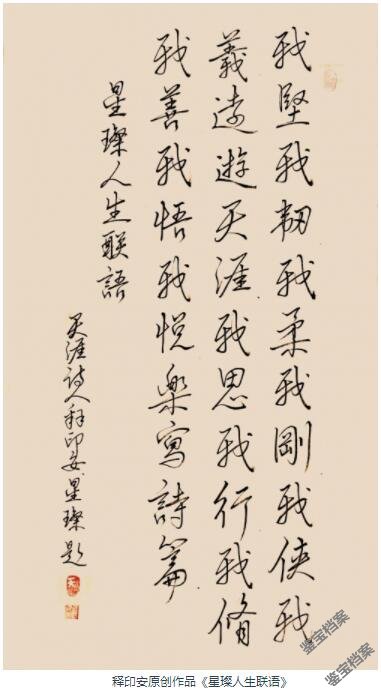 我堅我韌我柔我剛我俠我
義遠遊天涯我思我行我脩
我善我悟我悦樂寫詩篇
星璨人生联語
天涯诗人释印安星璨题
释印安原创作品《星璨人生联语》
鉴宝档案